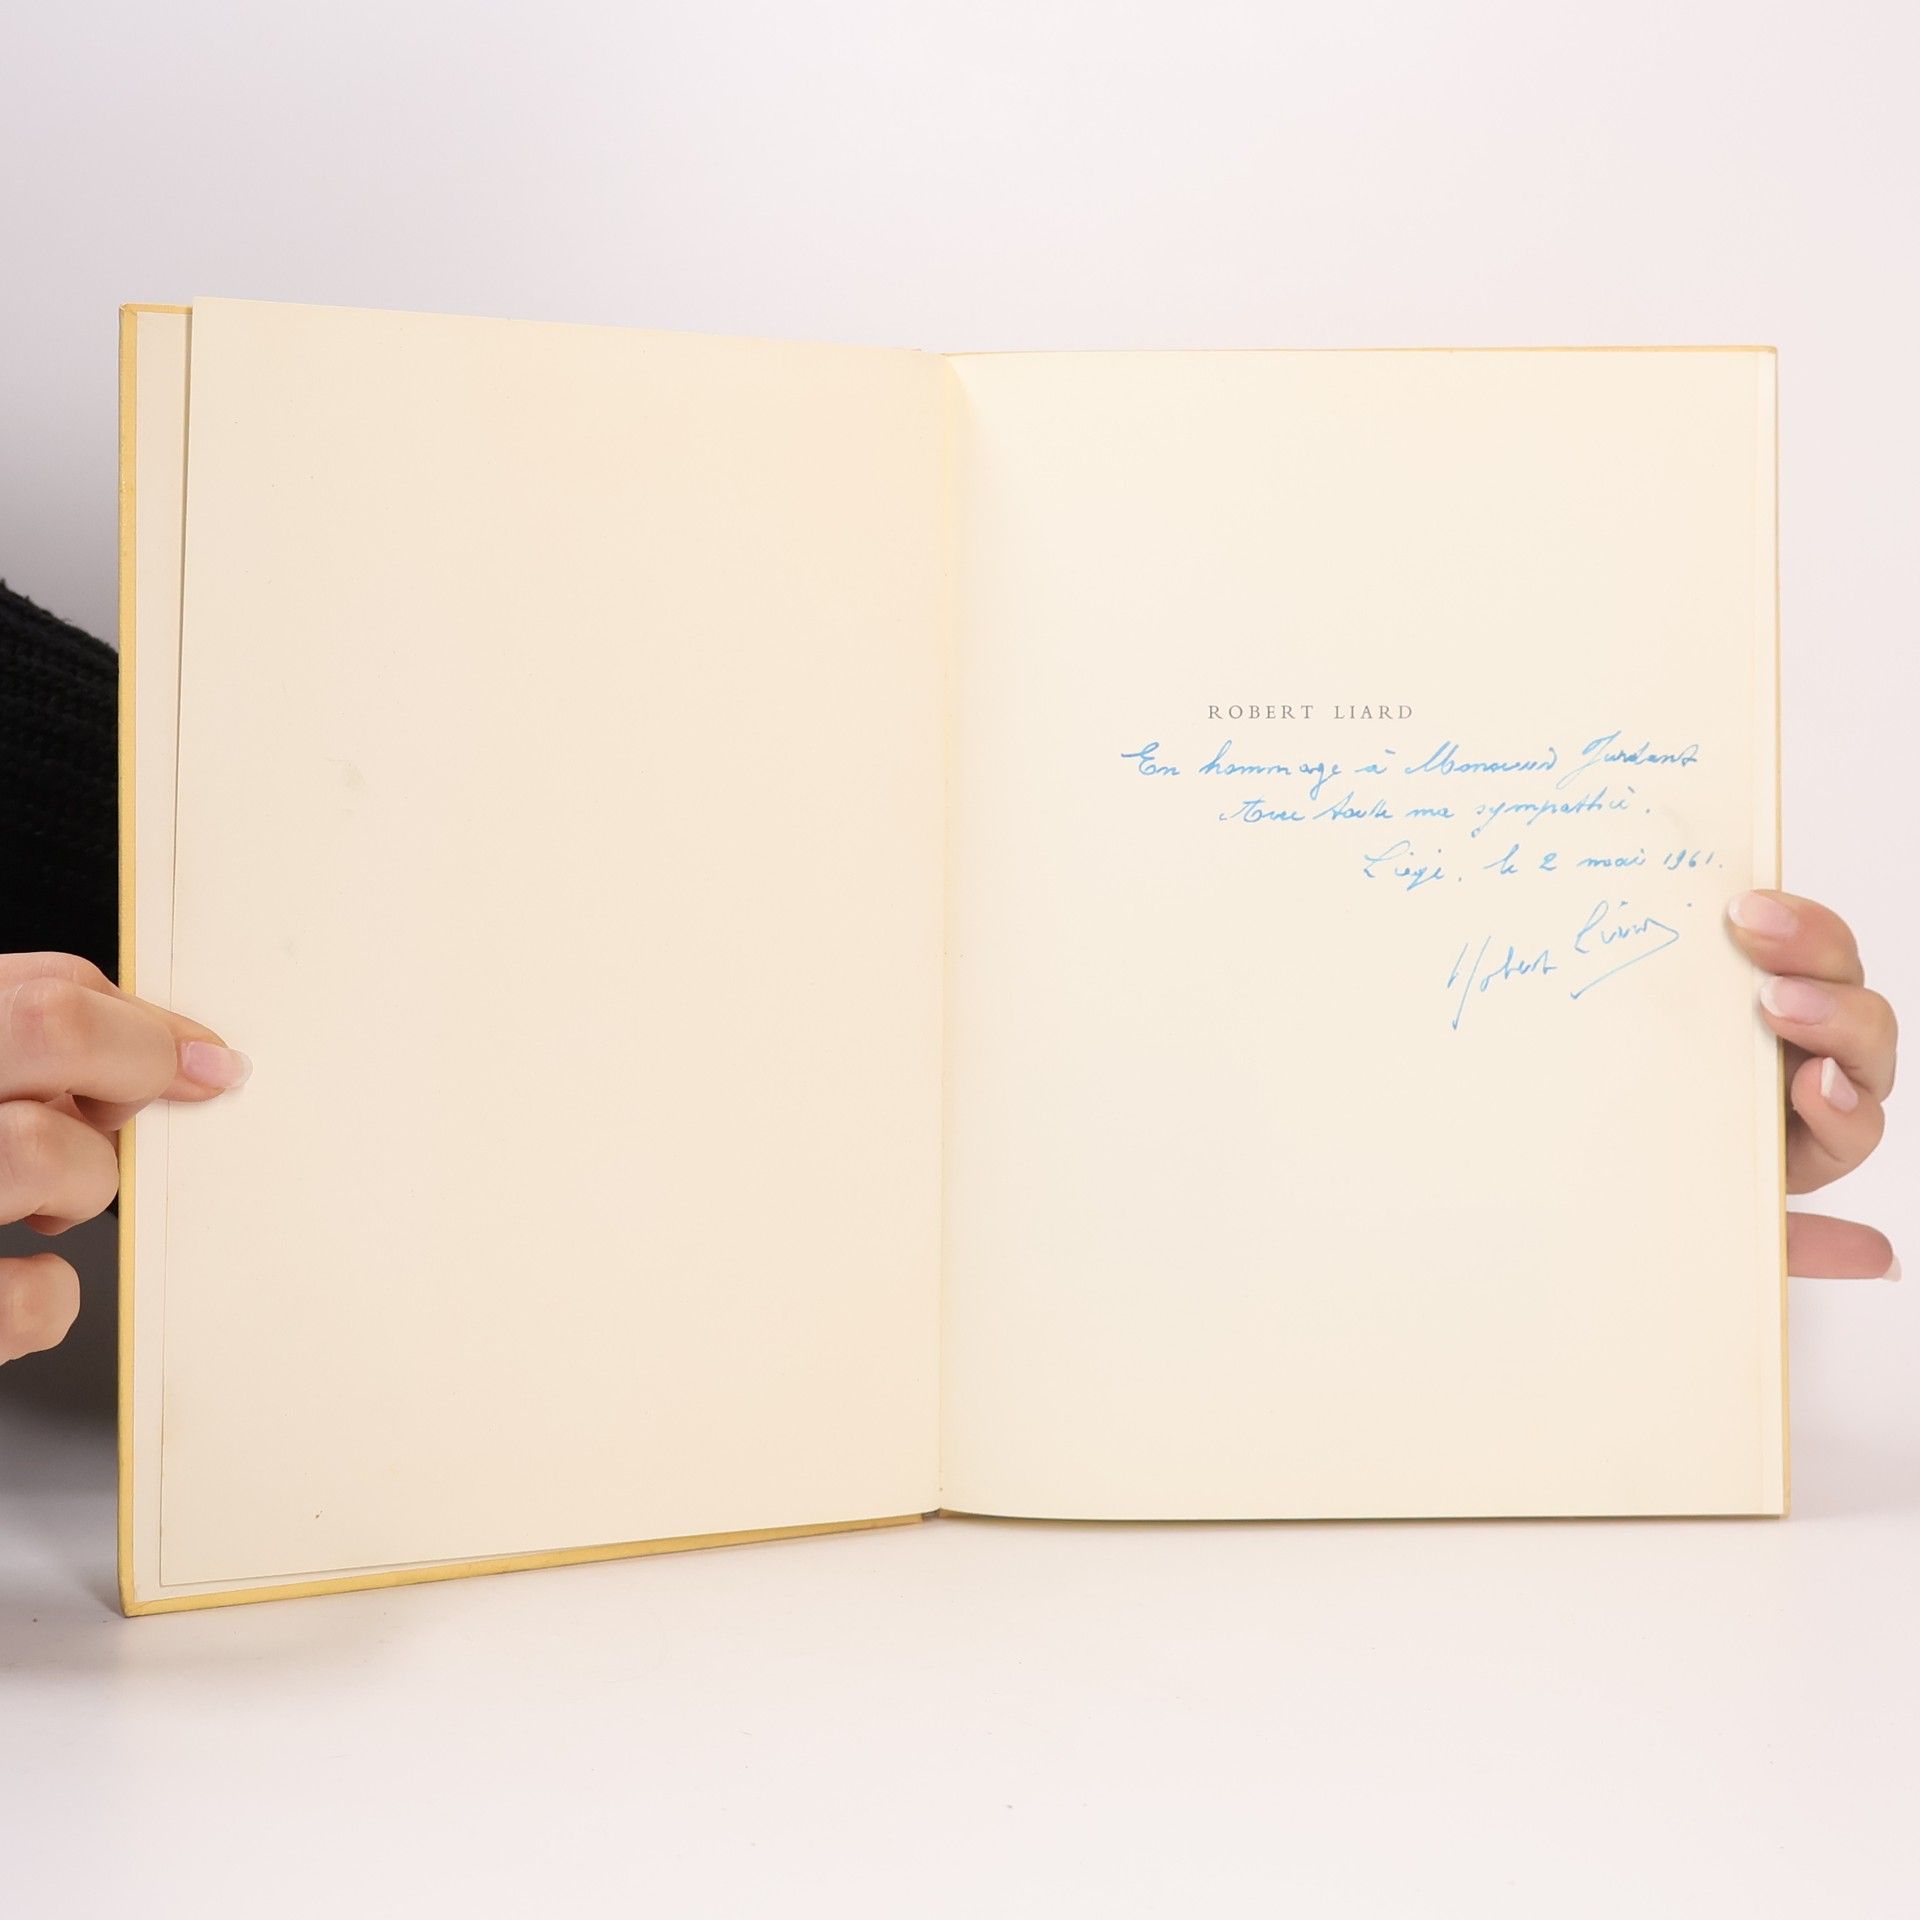 ROBERT LIARD
En hommage à Monsieur Jurdant
Avec toute ma sympathie.
Liège, le 2 mai 1961.
Robert Liard